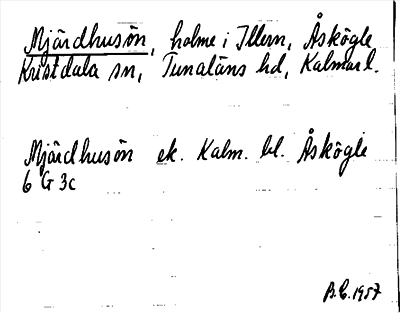 Mjärdhusön, holme i Illern, Åskögle
Kristdala sn, Tunaläns hd, Kalmar l.
Mjärdhusön ek. Kalm. bl. Åskögle
6 G 3c
B.C. 1957